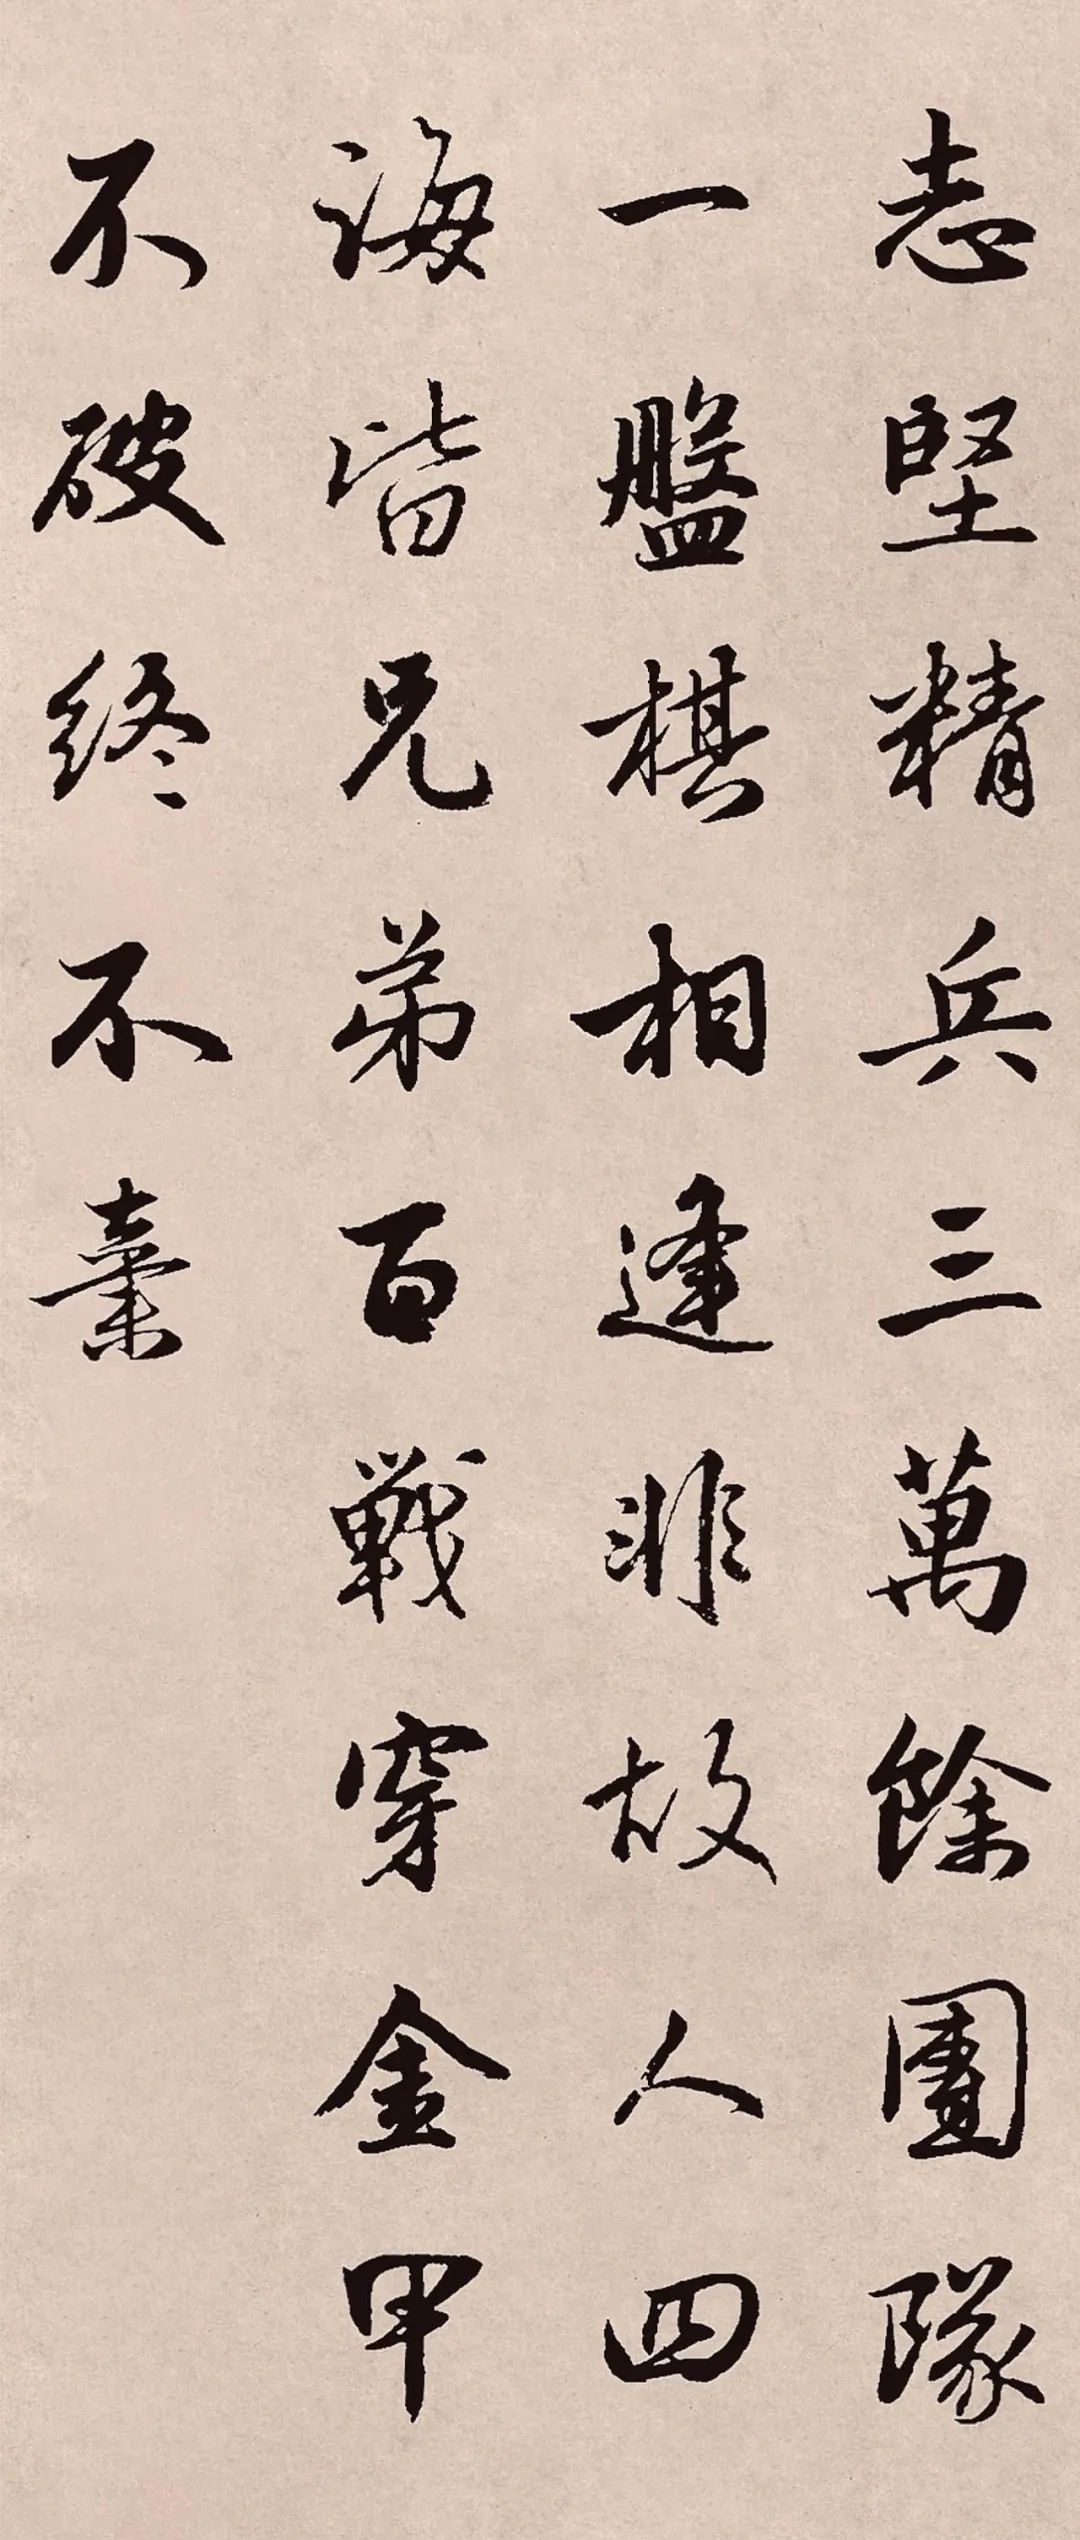 志堅精兵三萬餘團隊
一盤棋相逢非故人四
海皆兄弟百戰穿金甲
不破終不